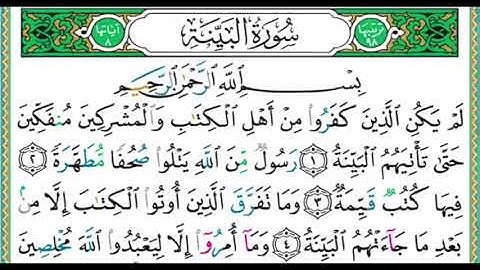 ترتيبها ٩٨ سُورَةُ البَيِّنَةِ آياتها ٨
بِسْمِ اللَّهِ الرَّحْمَٰنِ الرَّحِيمِ
لَمْ يَكُنِ الَّذِينَ كَفَرُوا مِنْ أَهْلِ الْكِتَابِ وَالْمُشْرِكِينَ مُنفَكِّينَ
حَتَّىٰ تَأْتِيَهُمُ الْبَيِّنَةُ ١ رَسُولٌ مِّنَ اللَّهِ يَتْلُوا صُحُفًا مُّطَهَّرَةً ٢
فِيهَا كُتُبٌ قَيِّمَةٌ ٣ وَمَا تَفَرَّقَ الَّذِينَ أُوتُوا الْكِتَابَ إِلَّا مِن
بَعْدِ مَا جَاءَتْهُمُ الْبَيِّنَةُ ٤ وَمَا أُمِرُوا إِلَّا لِيَعْبُدُوا اللَّهَ مُخْلِصِينَ